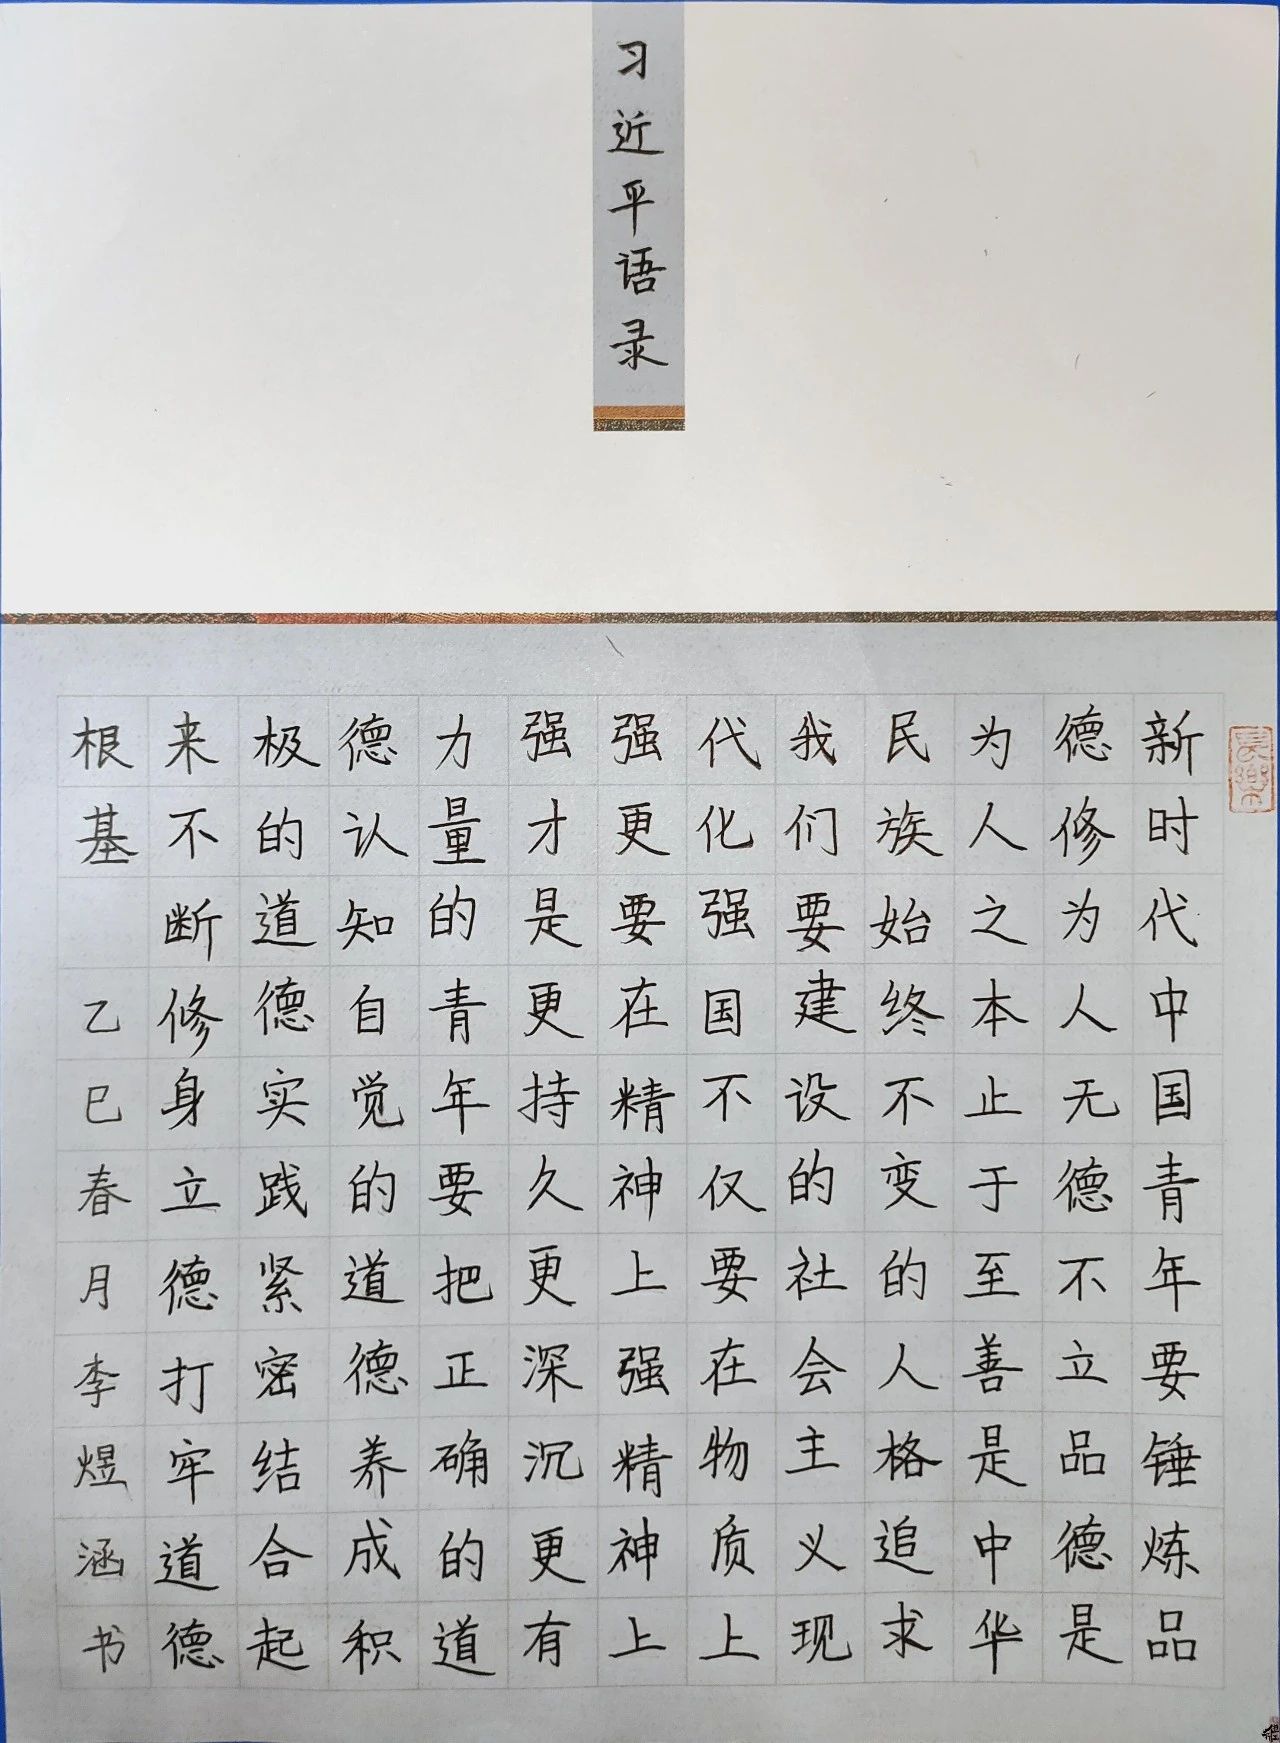 习近平语录
新时代中国青年要锤炼品
德修为人无德不立品德是
为人之本止于至善是中华
民族始终不变的人格追求
我们要建设的社会主义现
代化强国不仅要在物质上
强更要在精神上强精神上
强才是更持久更深沉更有
力量的青年要把正确的道
德认知自觉的道德养成积
极的道德实践紧密结合起
来不断修身立德打牢道德
根基
乙巳春月李煜涵书